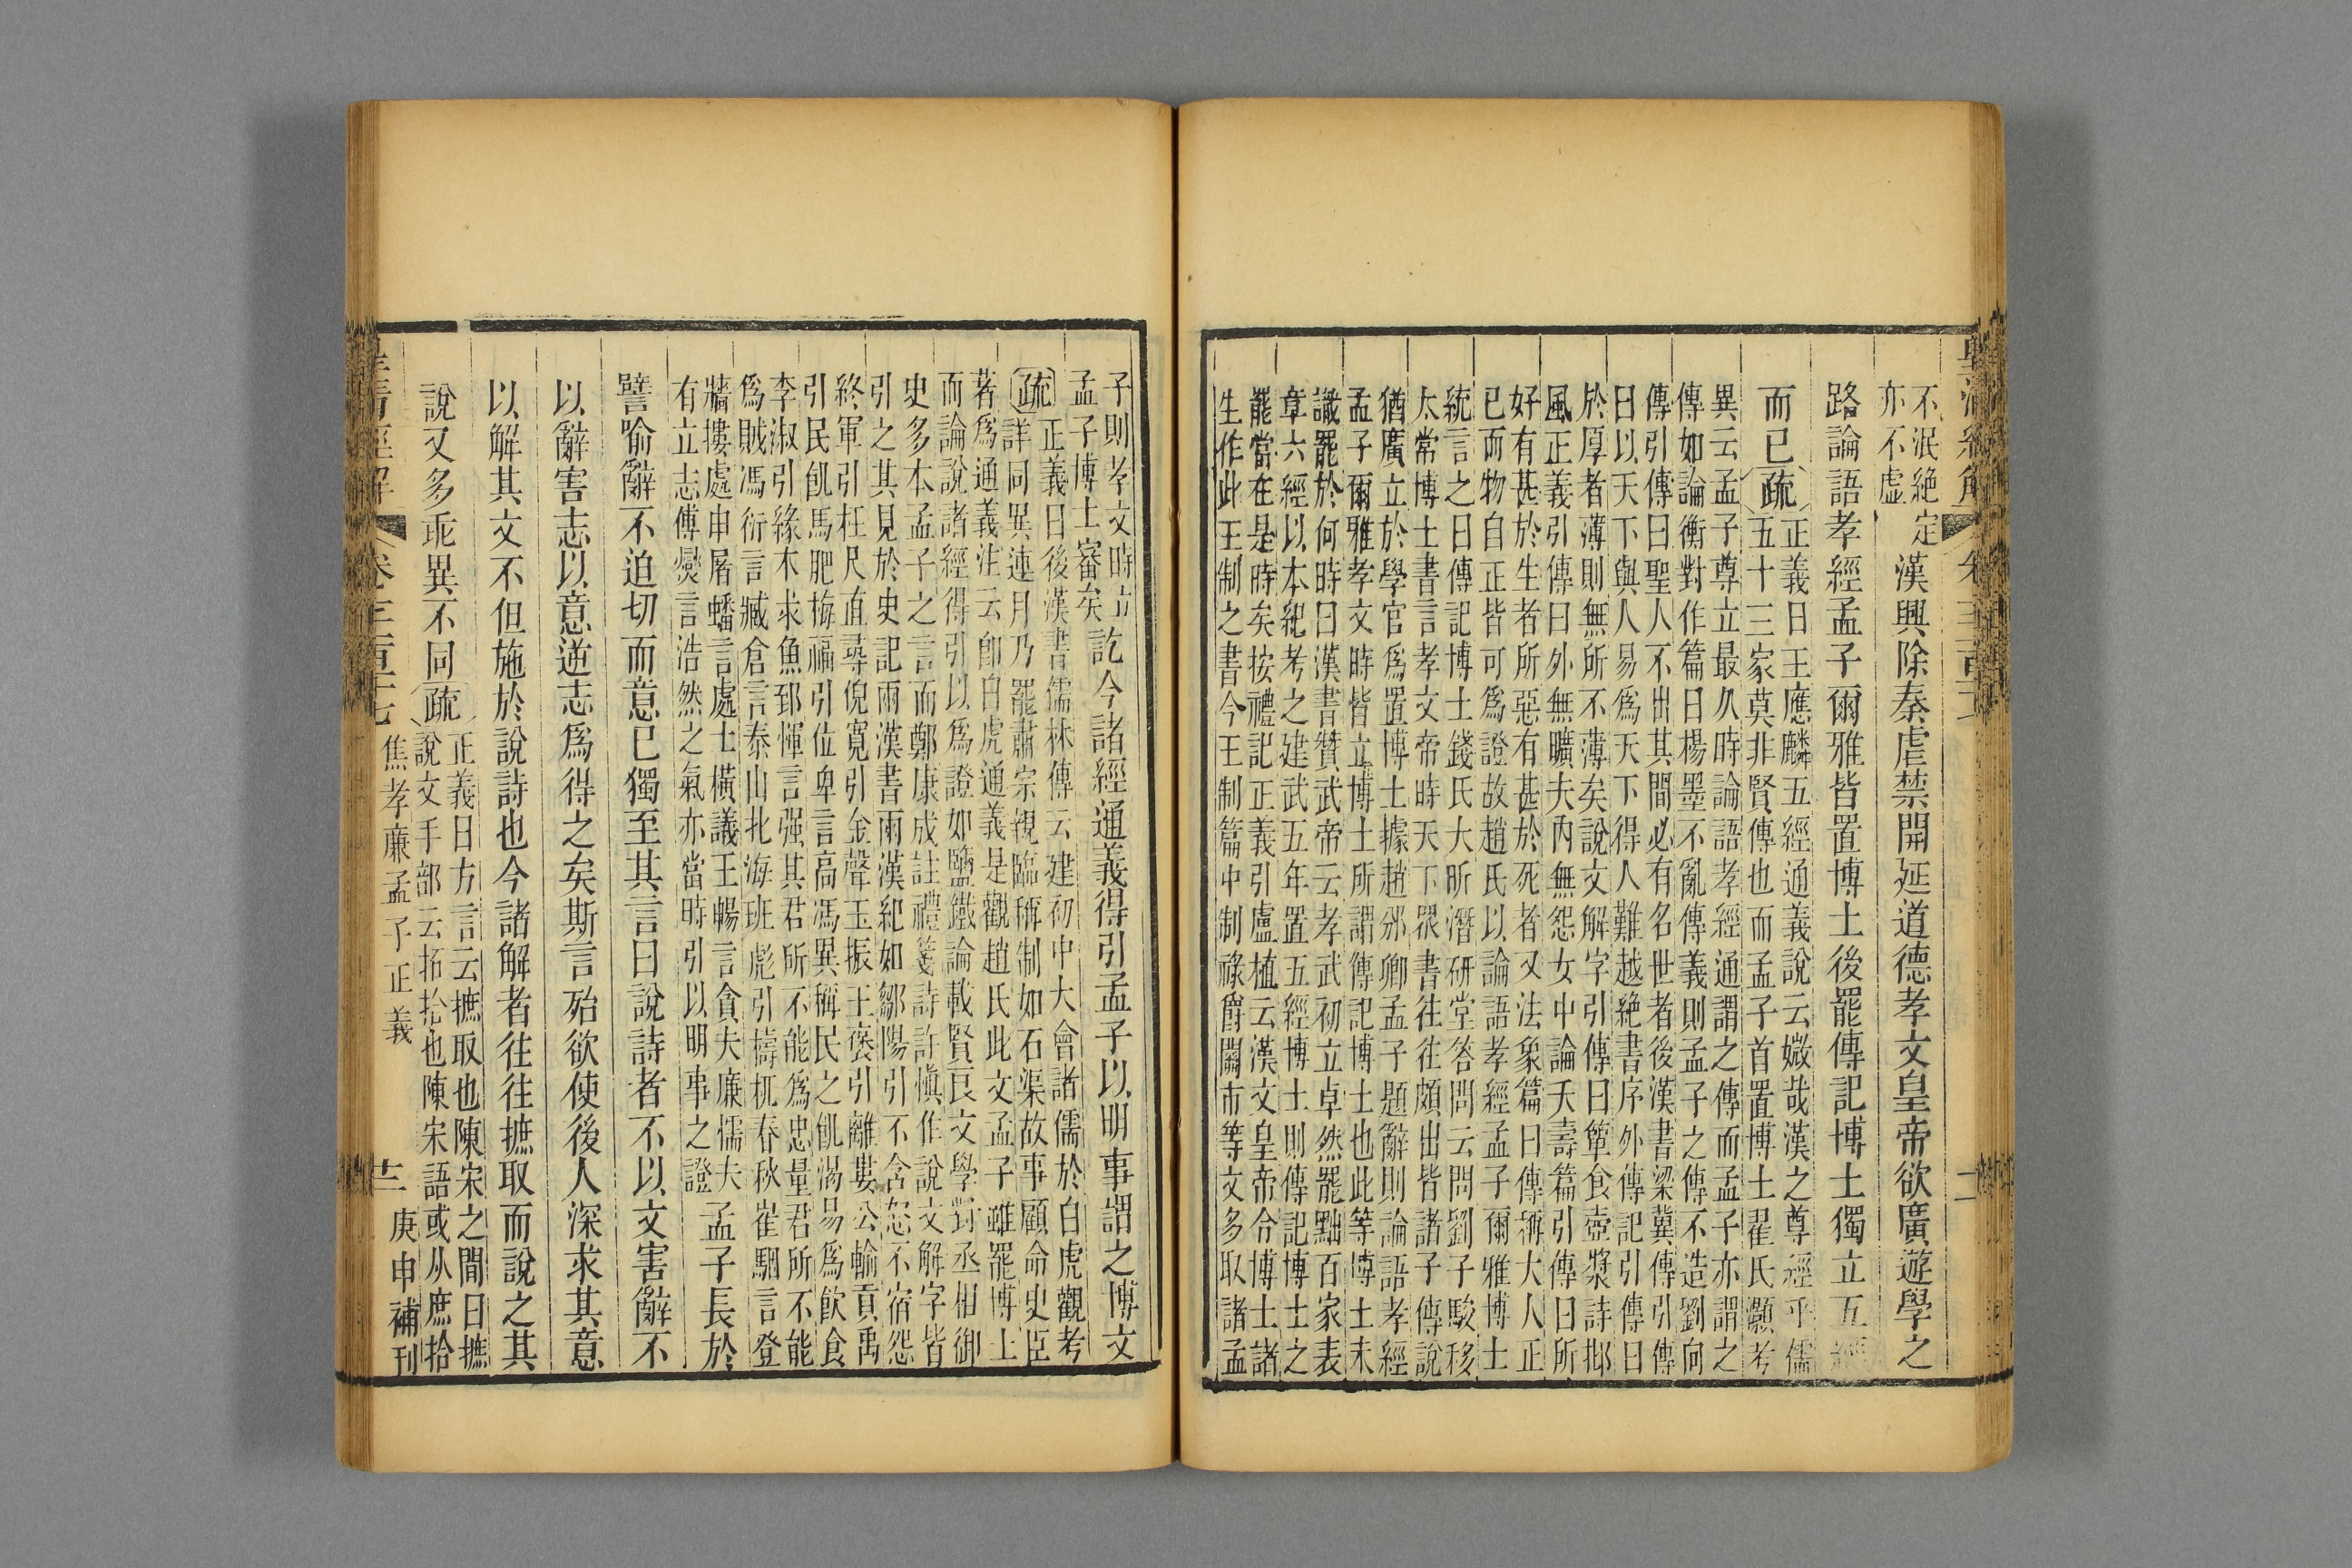 不泯絶定
亦不虛
漢興除秦虐禁開延道德孝文皇帝欲廣遊學之
路論語孝經孟子爾雅皆置博士後罷傳記博士獨立五經
而已疏
正義曰王應麟五經通義說云媺哉漢之尊經乎儒
五十三家莫非賢傳也而孟子首置博士翟氏顥考
異云孟子尊立最久時論語孝經通謂之傳而孟子亦謂之
傳如論衡對作篇曰楊墨不亂傳義則孟子之傳不造劉向
傳引傳曰聖人不出其間必有名世者後漢書梁冀傳引傳
曰以天下與人易爲天下得人難越絶書序外傳記引傳曰
於厚者薄則無所不薄矣說文解字引傳曰簞食壺漿詩邶
風正義引傳曰外無曠夫內無怨女中論夭壽篇引傳曰所
好有甚於生者所惡有甚於死者又法象篇曰傳稱大人正
已而物自正皆可爲證故趙氏以論語孝經孟子爾雅博士
統言之曰傳記博士錢氏大昕潛研堂答問云問劉子駿移
太常博士書言孝文帝時天下眾書往往頗出皆諸子傳說
猶廣立於學官爲置博士據趙邠卿孟子題辭則論語孝經
孟子爾雅孝文時皆立博士所謂傳記博士也此等博士未
識罷於何時曰漢書贊武帝云孝武初立卓然罷黜百家表
章六經以本紀考之建武五年置五經博士則傳記博士之
罷當在是時矣按禮記正義引盧植云漢文皇帝令博士諸
生作此王制之書今王制篇中制祿爵關市等文多取諸孟
子則孝文時立
孟子博士審矣
訖今諸經通義得引孟子以明事謂之博文
疏
正義曰後漢書儒林傳云建初中大會諸儒於白虎觀考
詳同異連月乃罷肅宗親臨稱制如石渠故事顧命史臣
著爲通義注云卽白虎通義是觀趙氏此文孟子雖罷博士
而論說諸經得引以爲證如鹽鐵論載賢良文學對丞相御
史多本孟子之言而鄭康成註禮箋詩許愼作說文解字皆
引之其見於史記兩漢書兩漢紀如鄒陽引不含怒不宿怨
終軍引枉尺直尋倪寬引金聲玉振王襃引離婁公輸貢禹
引民飢馬肥梅福引位卑言高馮異稱民之飢渴易爲飲食
李淑引緣木求魚郅惲言强其君所不能爲忠量君所不能
爲賊馮衍言臧倉言泰山北海班彪引檮杌春秋崔駰言登
牆摟處申屠蟠言處士橫議王暢言貪夫廉懦夫
有立志傅爕言浩然之氣亦當時引以明事之證
孟子長於
譬喻辭不迫切而意已獨至其言曰說詩者不以文害辭不
以辭害志以意逆志爲得之矣斯言殆欲使後人深求其意
以解其文不但施於說詩也今諸解者往往摭取而說之其
說又多乖異不同疏
正義曰方言云摭取也陳宋之間曰摭
說文手部云拓拾也陳宋語或从庶拾
皇清經解
卷一千一百十七
焦孝廉孟子正義
庚申補刊